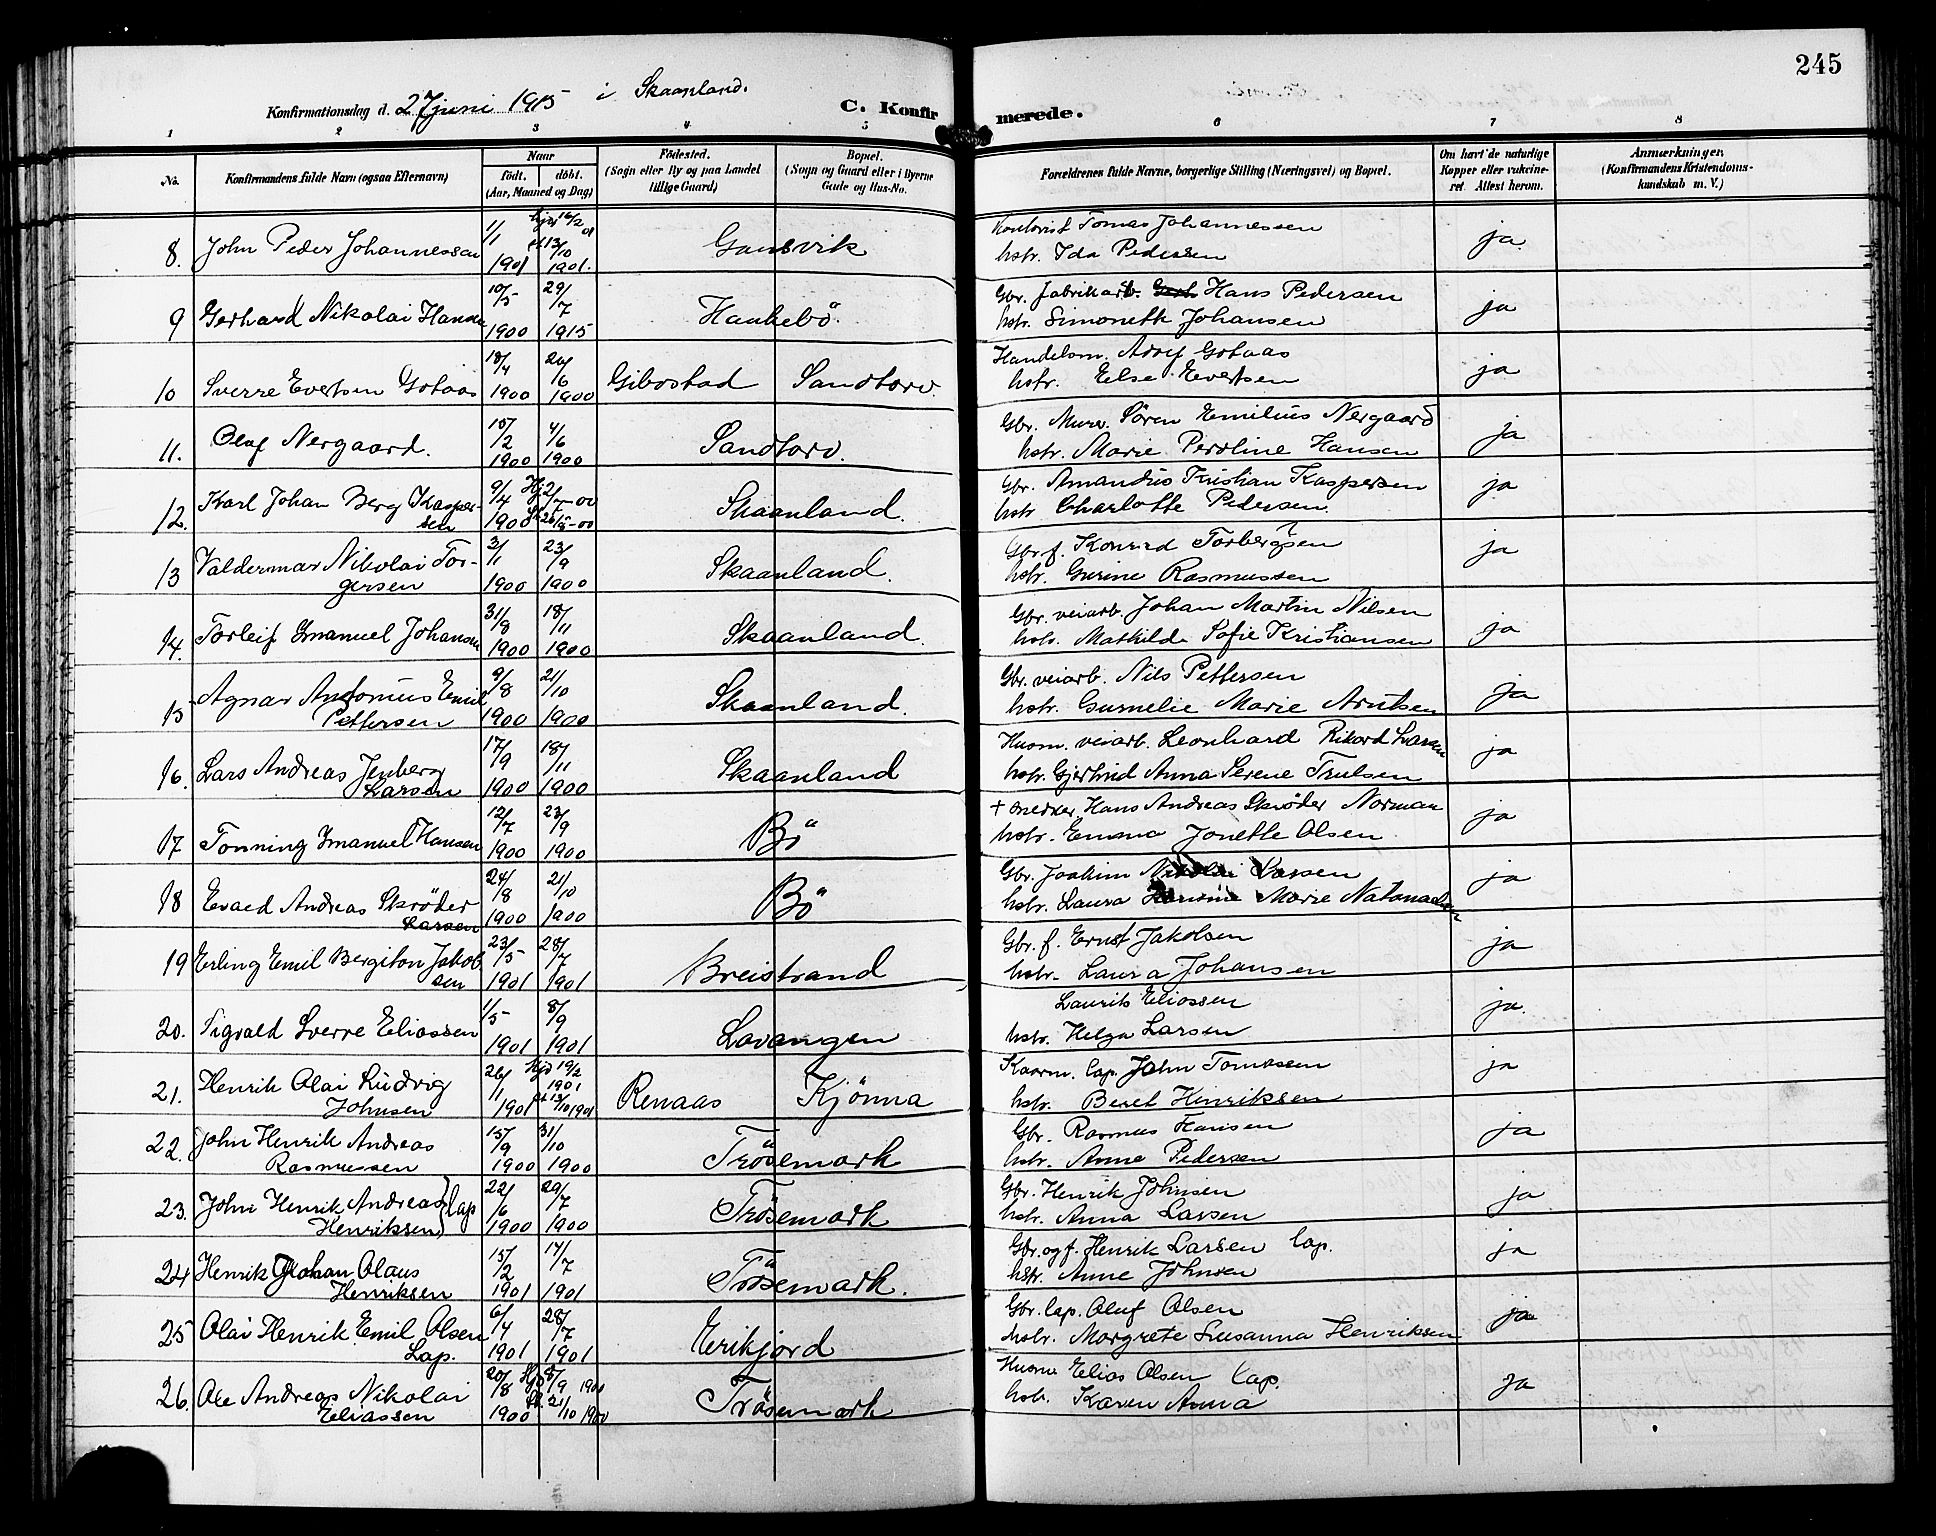 245
Konfirmationsdag d. 27 juni 1915 i Skaanland.
C. Konfirmerede.
1 2 3 4 5 6 7 8
No.
Konfirmandens fulde Navn (ogsaa Efternavn)
Naar
födt. döbt.
(Aar, Maaned og Dag)
Födested.
(Sogn eller By og paa Landet tillige Gaard)
Bopæl.
(Sogn og Gaard eller i Byerne Gade og Hus-No.
Forældrenes fulde Navne, borgerlige Stilling (Næringsvei) og Bopæl.
Om havt de naturlige Kopper eller vakcineret. Attest herom.
Anmærkninger
(Konfirmandens Kristendomskundskab m. V.)
8. John Peder Johannessen 1/1 1901 hjd 16/2 01 st 13/10 1901. Gansvik Tomas Johannessen ja
hstr. Ida Pedersen
9 Gerhard Nikolai Hansen 10/5 1900 29/7 1915 Haukebö. Gbr. fabrikarb. Hans Pedersen ja
hstr. Simonette Johansen
10 Sverre Evertsen Gotaas 18/4 1900 24/6 1900 Gibostad Sandtorv. Handelsm. Adolf Gotaas ja
hstr. Else Evertsen
11. Olaf Nergaard. 15/2 1900 4/6 1900 Sandtorv. Gbr. Murer. Søren Emilius Nergaard ja
hstr. Marie Peroline Hansen
12. Karl Johan Berg Kaspersen 9/4 1900 Hj 2/7-00 Skaanland. Gbr. Amandus Kristian Kaspersen ja
hstr Charlotte Pedersen
13 Valdemar Nikolai Torgersen 3/1 1900 23/9 1900 Skaanland. Gbr. f. Konrad Torbergsen ja
hstr. Gurine Rasmussen
14. Torleif Imanuel Johansen 31/8 1900 18/11 1900 Skaanland. Gbr. veiarb. Johan Martin Nilsen ja
hstr. Mathilde Sofie Kristiansen
15 Agnar Antonius Emil Pettersen 9/8 1900 21/10 1900 Skaanland. Gbr. veiarb. Nils Pettersen ja
hstr. Gurnelie Marie Arntsen
16. Lars Andreas Jenberg Larsen 17/9 1900 18/11 1900 Skaanland Husm. veiarb. Leonhard Rikard Larsen ja
hstr. Gjertrud Anna Serene Trulsen
17 Tonning Imanuel Hansen 12/7 1900 23/9 1900 Bö + snekker, Hans Andreas Skrøder Norman ja
hstr. Emma Jonette Olsen
18 Evald Andreas Skröder Larsen 24/8 1900 21/10 1900 Bö Gbr. Joakim Nikolai Larsen ja
hstr. Laura Marie Natanaelsen
19 Erling Emil Bergiton Jakobsen 23/5 1901 28/7 1901 Breistrand Gbr. f. Ernst Jakobsen ja
hstr. Laura Johansen
20. Sigvald Sverre Eliassen 1/5 1901 8/9 1901 Lavangen Laurits Eliassen ja.
hstr. Helga Larsen
21. Henrik Olai Ludvig Johnsen 26/1 1901 Hjd 19/2 1901 st 13/10 1901 Renaas Kjönna Kaarm. lap. John Tomassen ja
hstr. Beret Henriksen
22. John Henrik Andreas Rasmussen 15/9 1900 31/10 1900 Trösemark Gbr. Rasmus Hansen ja
hstr. Anne Pedersen
23. John Henrik Andreas Henriksen} lap 22/6 1900 29/7 1900 Trösemark Gbr. Henrik Johnsen ja
hstr. Anna Larsen
24 Henrik Johan Olaus Henriksen 15/2 1901 14/7 1901 Trösemark. Gbr. og f. Henrik Larsen lap. ja
hstr. Anne Johnsen
25 Olai Henrik Emil Olsen Lap. 6/4 1901 28/7 1901 Erikjord Gbr. lap. Oluf Olsen ja
hstr. Margrete Susanna Henriksen
26. Ole Andreas Nikolai Eliassen 20/8 1900 Hjd 8/9 1900 St. 21/10 1900 Trösemark Husm Elias Olsen Lap. ja
hstr. Karen Anna